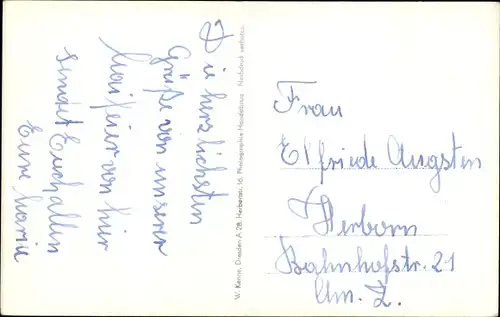 Die herzlichsten
Grüße von unserer
Maifeier von hier
sendet Euch allen
Eure Maria
W. Kenne, Dresden A 28, Herberstr. 16. Photographie Handabzug Nachdruck verboten
Frau
Elfriede Augsten
Herborn
Bahnhofstr. 21